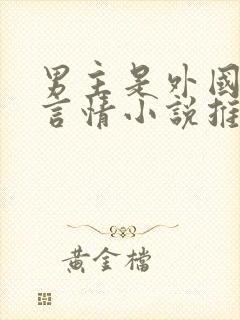 男主是外國
言情小說推
黃金檔